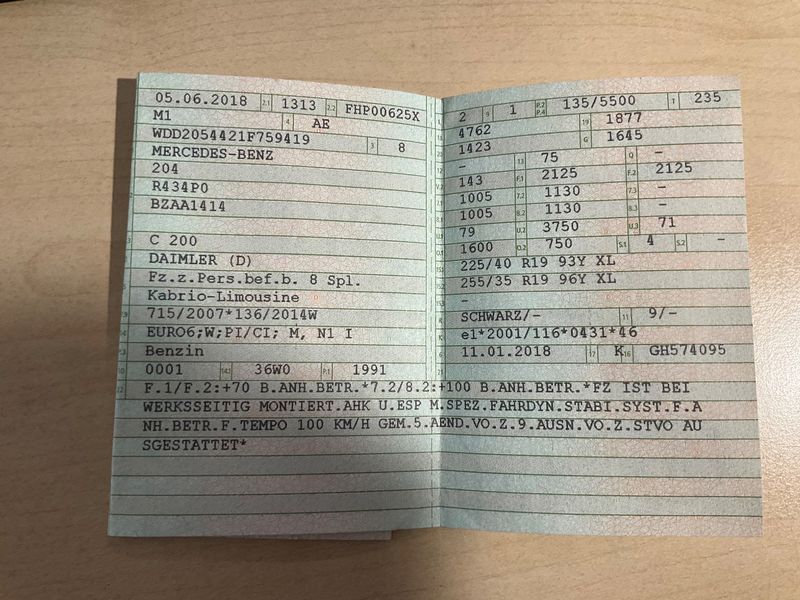 05.06.2018 2.1 1313 2.2 FHP00625X
M1 4 AE
WDD2054421F759419 3 8
MERCEDES-BENZ
204
R434P0
BZAA1414
C 200
DAIMLER (D)
Fz.z.Pers.bef.b. 8 Spl.
Kabrio-Limousine
715/2007*136/2014W
EURO6;W;PI/CI; M, N1 I
Benzin
0001 14.1 36W0 P.1 1991
2 9 1 P.2 P.4 135/5500 T 235
4762 19 1877
1423 G 1645
- 13 75 Q -
143 F.1 2125 F.2 2125
1005 7.2 1130 7.3 -
1005 8.2 1130 8.3 -
79 U.2 3750 U.3 71
1600 O.2 750 S.1 4 S.2 -
225/40 R19 93Y XL
255/35 R19 96Y XL
-
SCHWARZ/- 11 9/-
e1*2001/116*0431*46
11.01.2018 17 K 16 GH574095
F.1/F.2:+70 B.ANH.BETR.*7.2/8.2:+100 B.ANH.BETR.*FZ IST BEI
WERKSSEITIG MONTIERT.AHK U.ESP M.SPEZ.FAHRDYN.STABI.SYST.F.A
NH.BETR.F.TEMPO 100 KM/H GEM.5.AEND.VO.Z.9.AUSN.VO.Z.STVO AU
SGESTATTET*